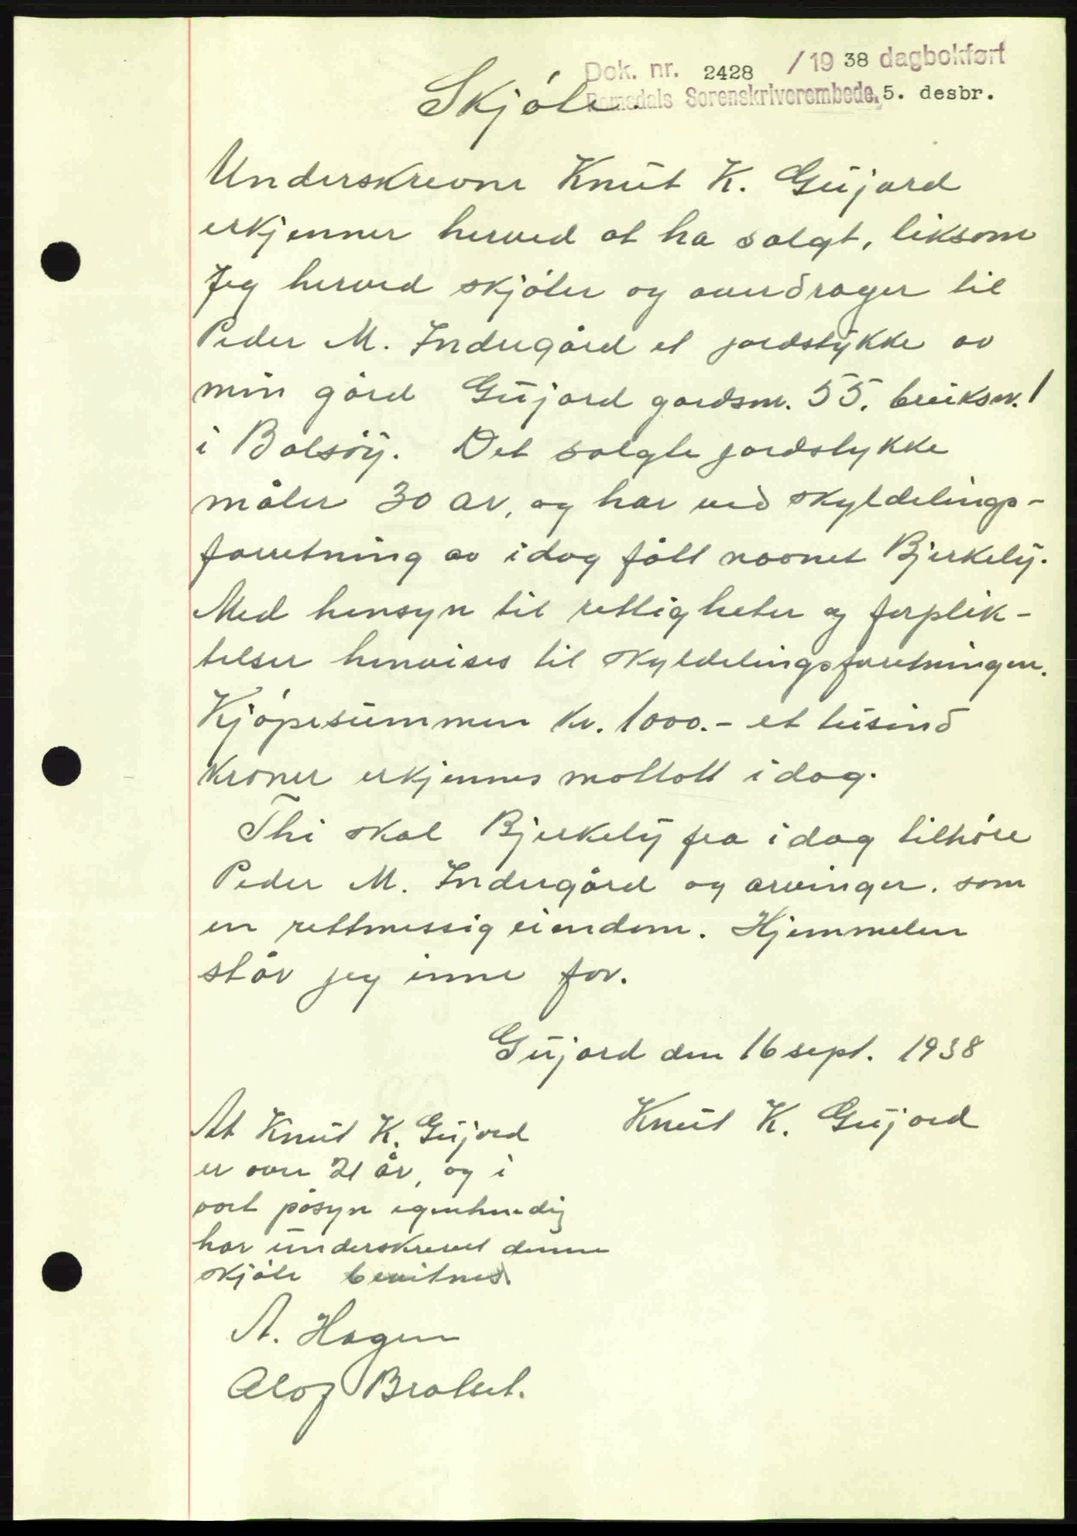 Dok. nr. 2428 / 19 38 dagbokført
Romsdals Sorenskriverembede, 5. desbr.
Skjöte.
Underskrevne Knut K. Gujord
erkjenner herved at ha solgt, liksom
jeg herved skjöter og overdrager til
Peder M. Indergård et jordstykke av
min gård Gujord gardsnr. 55. bruksnr. 1
i Bolsöy. Det solgte jordstykke
måler 30 ar, og har ved skyldelings-
forretning av idag fått navnet Bjerkely.
Med hensyn til rettigheter og forplik-
telser henvises til skyldelingsforretningen.
Kjöpesummen kr. 1000.- et tusind
kroner erkjennes mottatt idag.
Thi skal Bjerkely fra idag tilhöre
Peder M. Indergård og arvinger, som
en rettmessig eiendom. Hjemmelen
står jeg inne for.
Gujord den 16 sept. 1938
Knut K. Gujord
At Knut K. Gujord
er over 21 år, og i
vort påsyn egenhendig
har underskrevet denne
skjöte bevitnes
A. Hagen
Olof Bratset.